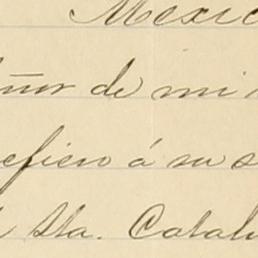 Mexic
ñor de mi
efiero á su s
Sta. Catal